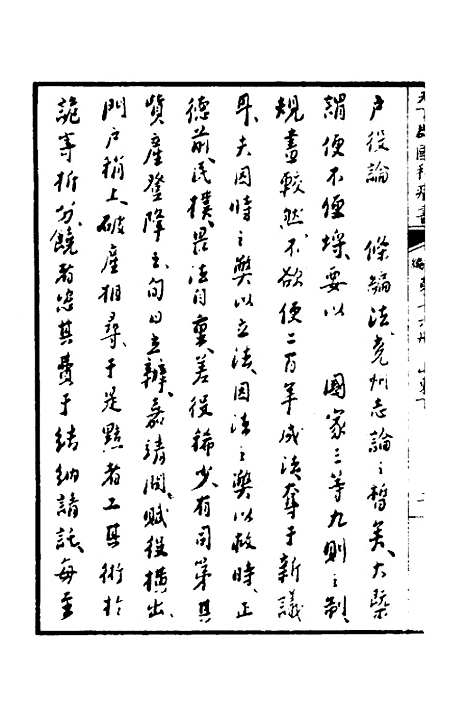 天下郡國利病書 編 第十六册 山東下
戶役論 條編法兗州志論之晳矣大槩
謂便不便埒要以 國家三等九則之制
規畫較然不欲使二百年成法奪于新議
耳夫因時之獘以立法因法之獘以救時正
德前民樸畏法自重差役稀少有司第其
貲產登降之旬日立辦嘉靖間賦役橫出
門戶稍上破產相尋于是黠者工其術於
詭寄析分饒者忠其費于結納請託每至